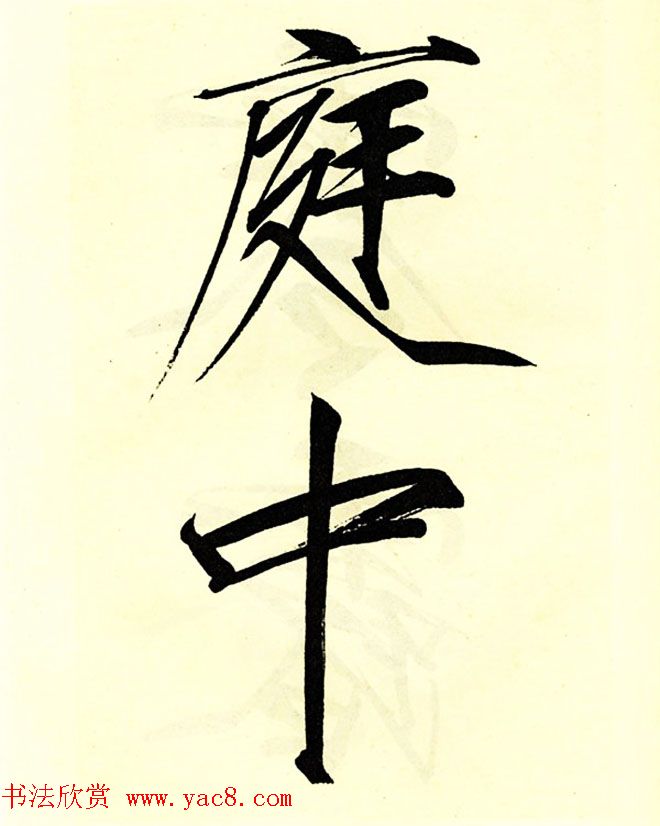 庭中
书法欣赏 www.yac8.com